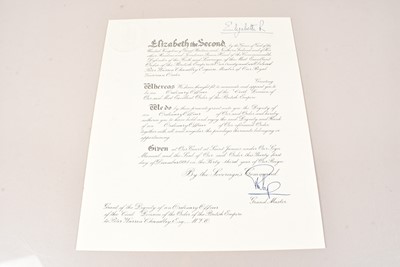 Elizabeth R
Elizabeth the Second, by the Grace of God of the
United Kingdom of Great Britain and Northern Ireland and of
Her other Realms and Territories Queen Head of the Commonwealth
Defender of the Faith and Sovereign of the Most Excellent
Order of the British Empire to
Our
Victorian Order
Greeting
Whereas We have thought fit to nominate and appoint you to
be an Ordinary Officer of the Civil Division of
Our said Most Excellent Order of the British Empire
We do by these presents grant unto you the Dignity of
an Ordinary Officer of Our said Order and hereby
authorise you to have hold and enjoy the said Dignity and Rank
of an Ordinary Officer of Our aforesaid Order
together with all and singular the privileges thereunto belonging or
appertaining
Given at Our Court at Saint James's under Our Sign
Manual and the Seal of Our said Order this Thirty first
day of December in the Thirty year of Our Reign
By the Sovereign's Command
Grand Master
Grant of the Dignity of an Ordinary Officer
of the Civil Division of the Order of the British Empire
to Esq.